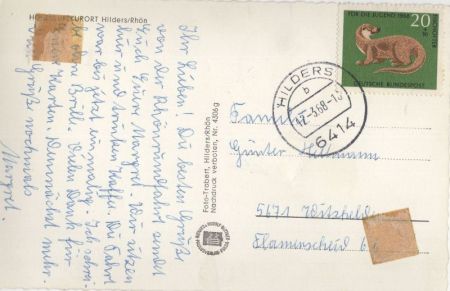 HÖHENLUFTKURORT Hilders/Rhön
Ihr Lieben! Die besten Grüße
von der Rhönrundfahrt sendet
Euch Eure Margret. Wir sitzen
hier und trinken Kaffee. Die Fahrt
war bis jetzt einmalig. Ich
die Brille. Vielen Dank für
Karten. Demnächst mehr.
Grüße nochmals
Margret.
Foto-Trabert, Hilders/Rhön
Nachdruck verboten, Nr. 4306g
FÜR DIE JUGEND 1968
20
+10
DEUTSCHE BUNDESPOST
HILDERS
b
-3.68-
6414
Familie
Günter
5671 Witzhelden